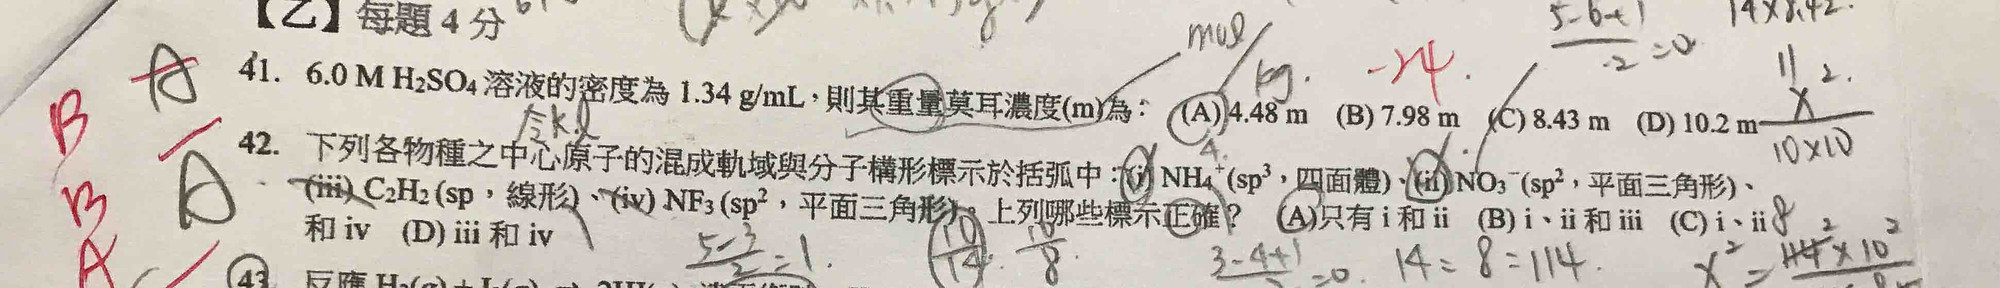 【乙】每題 4 分
5-6+1
-2 =0
14×8.42.
mol
kg.
-24.
11 2.
x
10×10
B A 41. 6.0 M H₂SO₄ 溶液的密度為 1.34 g/mL,則其重量莫耳濃度(m)為: (A) 4.48 m (B) 7.98 m (C) 8.43 m (D) 10.2 m
B A 42. 下列各物種之中心原子的混成軌域與分子構形標示於括弧中:(i) NH₄⁺ (sp³,四面體)、(ii) NO₃⁻ (sp²,平面三角形)、
(iii) C₂H₂ (sp,線形)、(iv) NF₃ (sp²,平面三角形)。上列哪些標示正確? (A)只有 i 和 ii (B) i、ii 和 iii (C) i、ii
和 iv (D) iii 和 iv
A
5-3
2 =1.
10
14.
10
8.
3-4+1
=0.
14=8=114.
43 反應 H₂(g) + I₂(g)